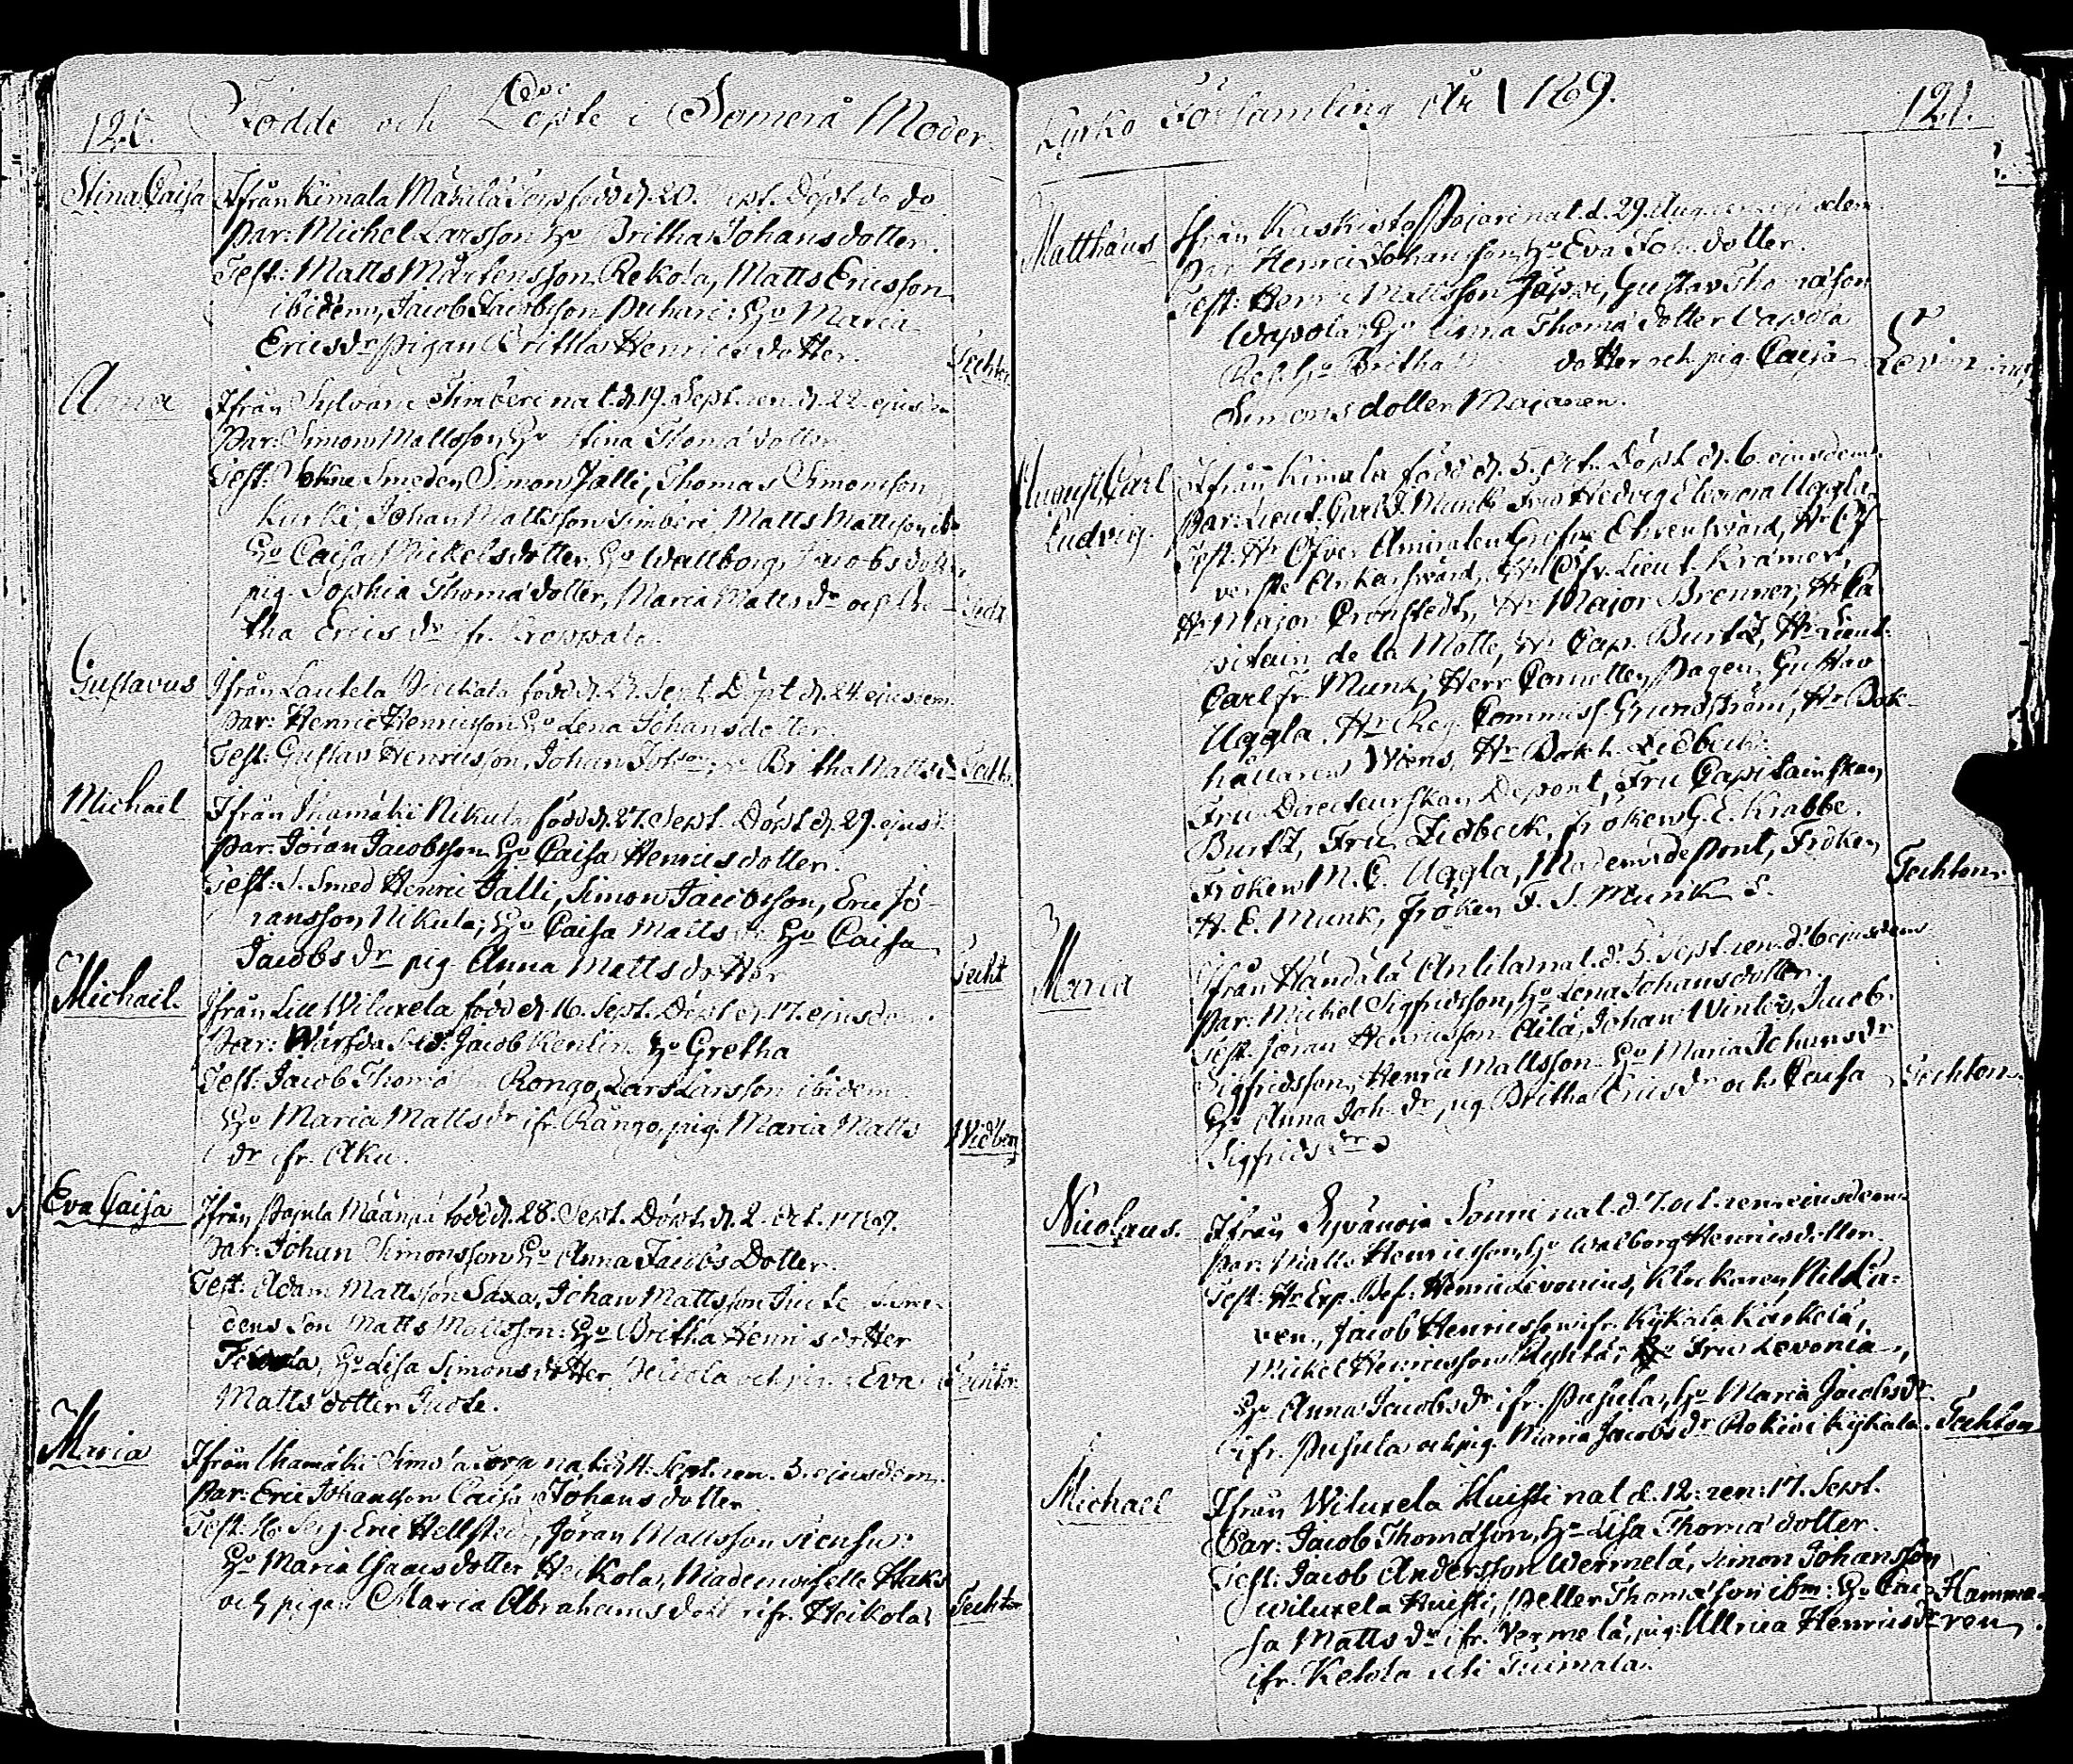 120. Födde och Döpte i Somerå Moder
Stina Caisa Ifrån Kimala Mäkilä Torp född d. 20. Sept. Döpt do do
Par: Michel Larsson Hu Britha Johansdotter.
Test: Matts Mårtensson Rekola, Matts Ericsson
ibidem, Jacob Jacobsson Puhari: Hu Maria
Ericsdr pigan Britha Henricsdotter.
Techten
Anna Ifrån Sylvänä Timberi nat. d. 19. Sept. ren. d. 22 ejusdem
Par: Simon Mattsson Hu Stina Thomædotter
Test: Sokne Smeden Simon Jalli, Thomas Simonsson
Kurki, Johan Mattsson Timberi, Matts Mattsson ib
Hu Caisa Mickelsdotter, Hu Wallborg Jacobsdotter,
pig. Sophia Thomædotter, Maria Mattsdr och Bri-
tha Ericsdr ifr.
Techt
Gustavus Ifrån Lautela född d. 23. Sept. Döpt d. 24 ejusdem.
Par: Henric Henricsson Hu Lena Johansdotter.
Test: Gustav Henricsson, Johan Hu Britha Mattsdr
Techt.
Michaël Ifrån Ihamäki Nikula född d. 27. Sept. Döpt d. 29. ejusd.
Par: Jöran Jacobsson Hu Caisa Henricsdotter.
Test: S. Smed Henric Jalli, Simon Jacobsson, Eric Jö-
ransson Nikula; Hu Caisa Mattsdr Hu Caisa
Jacobsdr pig Anna Mattsdotter
Techt
Michaël. Ifrån Lill Wiluxela född d. 16. Sept. Döpt d. 17. ejusdem.
Par: Jacob Kenlin Hu Gretha
Test: Jacob Thomæson Rongo, Lars Larsson ibidem
Hu Maria Mattsdr ifr. Rångo, pig. Maria Matts
dr ifr. Aku.
Widberg
Eva Caisa Ifrån Pajula Määnpä född d. 28. Sept. Döpt. d. 2. Oct. 1789.
Par: Johan Simonsson Hu Anna Jacobs Dotter.
Test: Adam Mattsson Saxa, Johan Mattsson
dens Son Matts Mattsson: Hu Britha Henricsdotter
Hu Lisa Simonsdotter, och Eva
Mattsdotter
Techten
Maria Ifrån Ihamäki Simola Torp nat. d. 4. Sept. ren. 5. ejusdem.
Par: Eric Johansson Caisa Johansdotter
Test: Hr Serj. Eric Hellstedt, Jöran Mattsson
Hu Maria Isaacsdotter Heikola, Mademoiselle Haks
och pigan Maria Abrahamsdotter ifr. Heikola
Techten
Kyrko Församling År 1789. 121.
Matthæus Ifrån Kaskisto Pajari nat. d. 29. Aug. ren ejusdem.
Par: Henric Johansson, Hu Eva Joh. dotter.
Test: Henric Mattsson Jäppi, Gustav Thomæson
Wapola: Hu Anna Thomædotter Vapola
Hu Britha dotter och pig. Caisa
Simonsdotter Majanen.
Levinius
August Carl Ludvig. Ifrån Kimala född d. 5. Oct. Döpt d. 6. ejusdem.
Par: Lieut. Carl F. Munk Fru Hedvig Eleonora Uggla
Test: Hr Öfver Amiralen Grefve Ehrensvärd, Hr Öf
verste Ankarsvärd, Hr Öfv. Lieut. Kræmer,
Hr Major Cronstedt, Hr Major Brenner, Hr Ca
pitain de la Motte, Hr Cap. Burtz, Hr Lieut.
Carl fr. Munk, Herr Cornetten, Pagen Gustav
Uggla, Hr Reg. Commiss. Grundström, Hr Bok-
hållaren Wiens, Hr Bokh. Lidbeck:
Fru Directeurskan Depont, Fru Capitainskan
Burtz, Fru Lidbeck, fröken G. E. Krabbe.
Fröken M. C. Uggla, Madem: de Pont, Fröken
H. E. Munk, fröken F. S. Munk
Techten.
Maria Ifrån Händälä Anlila nat. d. 5. Sept. ren. d. 6 ejusdem
Par: Michel Sigfridsson, Hu Lena Johansdotter.
Test. Jöran Henricsson Äilä, Johan Jacob
Sigfridsson, Henric Mattsson Hu Maria Johansdr
Hu Anna Joh. dr pig. Britha Ericsdr och Caisa
Sigfridsdr
Techten.
Nicolaus. Ifrån Syvänoja Sonni nat. d. 7. oct. ren ejusdem
Par: Matts Henricsson, Hu Walborg Henricsdotter.
Test: Hr Exp. Bef. Henric Levonius, Klockaren Nils
Jacob Henricsson ifr. Kykala Karkela,
Mickel Henricsson Fru Levonia,
Hu Anna Jacobsdr ifr. Puhula, Hu Maria Jacobsdr
ifr. Puhula och pig. Maria Jacobsdr Kykala.
Techten
Michael Ifrån Wiluxela Huisti nat d. 12. ren: 17. Sept.
Par: Jacob Thomæson, Hu Lisa Thomædotter.
Test: Jacob Andersson Wermelä, Simon Johansson
Wiluxela Huisti, Petter Thomæson ibm: Hu Cai
sa Mattsdr ifr. Vermelä, pig. Ullrica Henricsdr
ifr. Ketola uti Tuimala.
Hamma
ren.